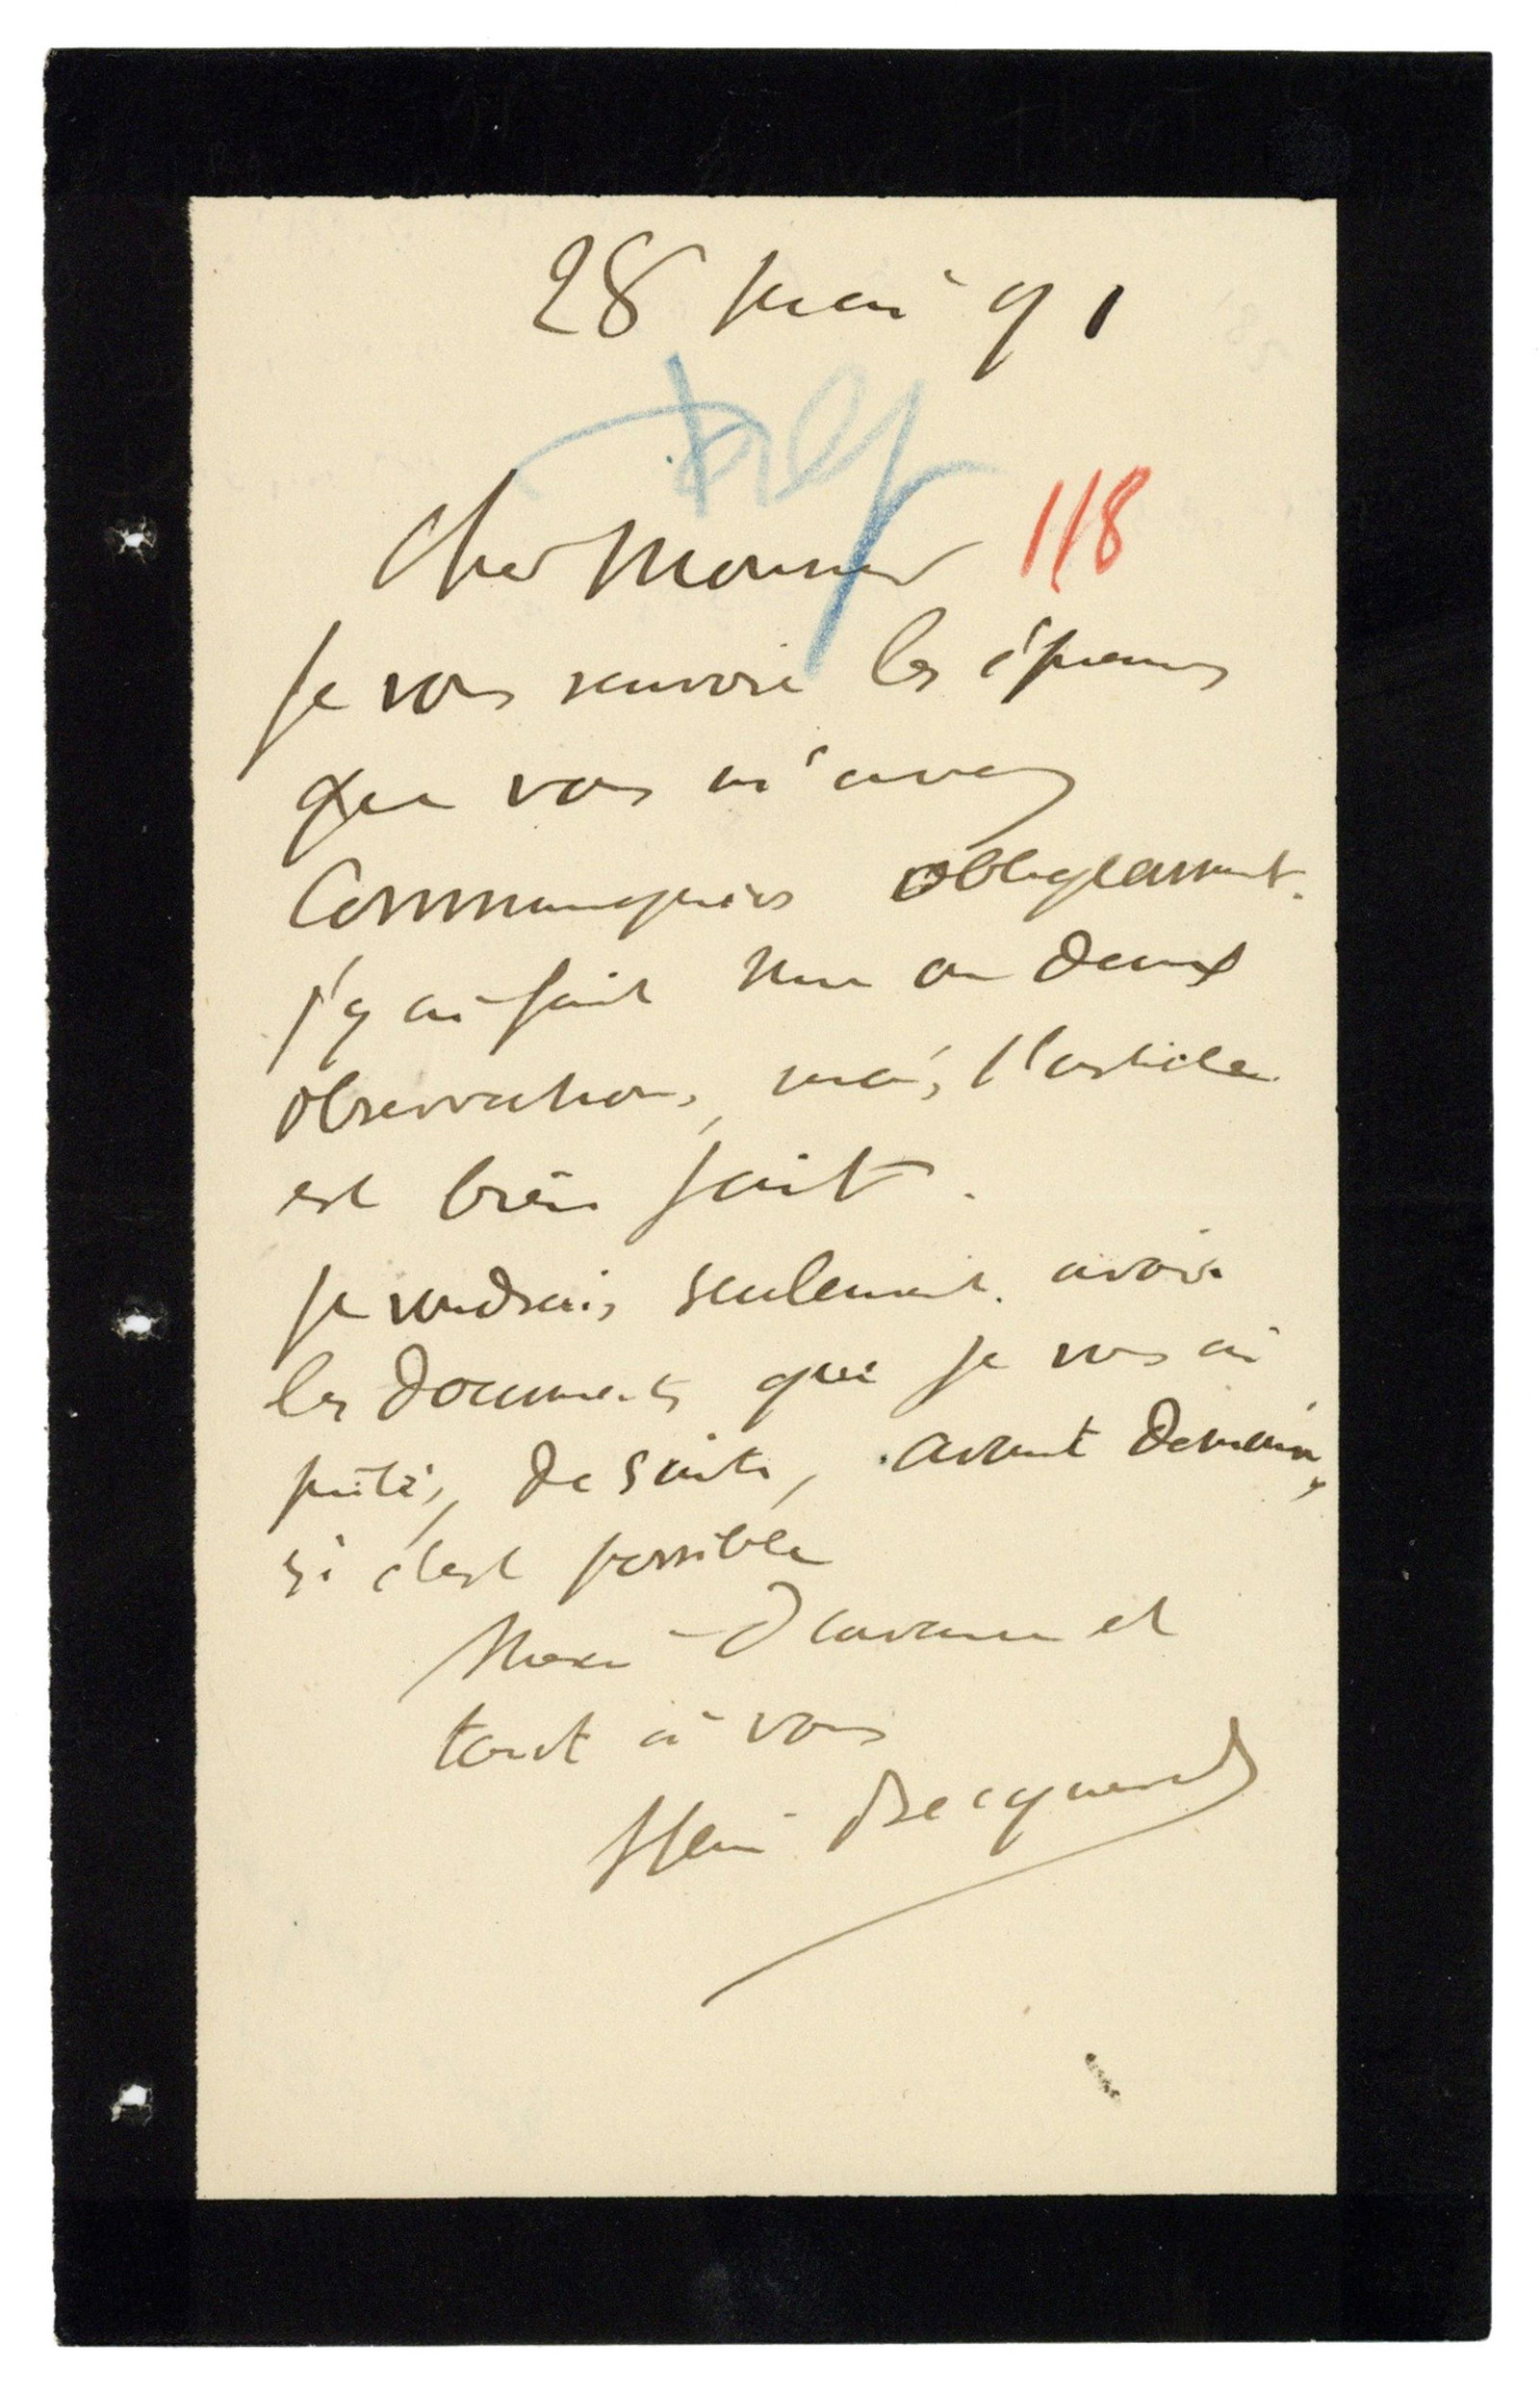 28 mai 91
118
Cher Monsieur
Je vous renvoie les épreuves
que vous m'avez
Communiquées obligeamment.
j'y ai fait une ou deux
observations, mais l'article
est bien fait.
Je voudrais seulement avoir
les documents que je vous ai
prêtés, de suite, avant demain,
si c'est possible
Merci d'avance et
tout à vous
Henri Becquerel